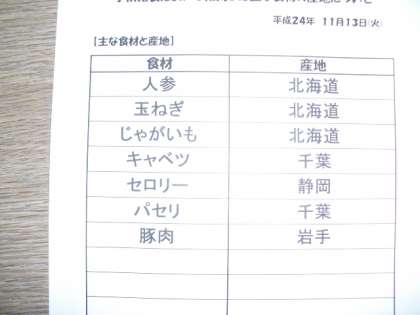 平成24年 11月13日(火)
[主な食材と産地]
食材 産地
人参 北海道
玉ねぎ 北海道
じゃがいも 北海道
キャベツ 千葉
セロリー 静岡
パセリ 千葉
豚肉 岩手